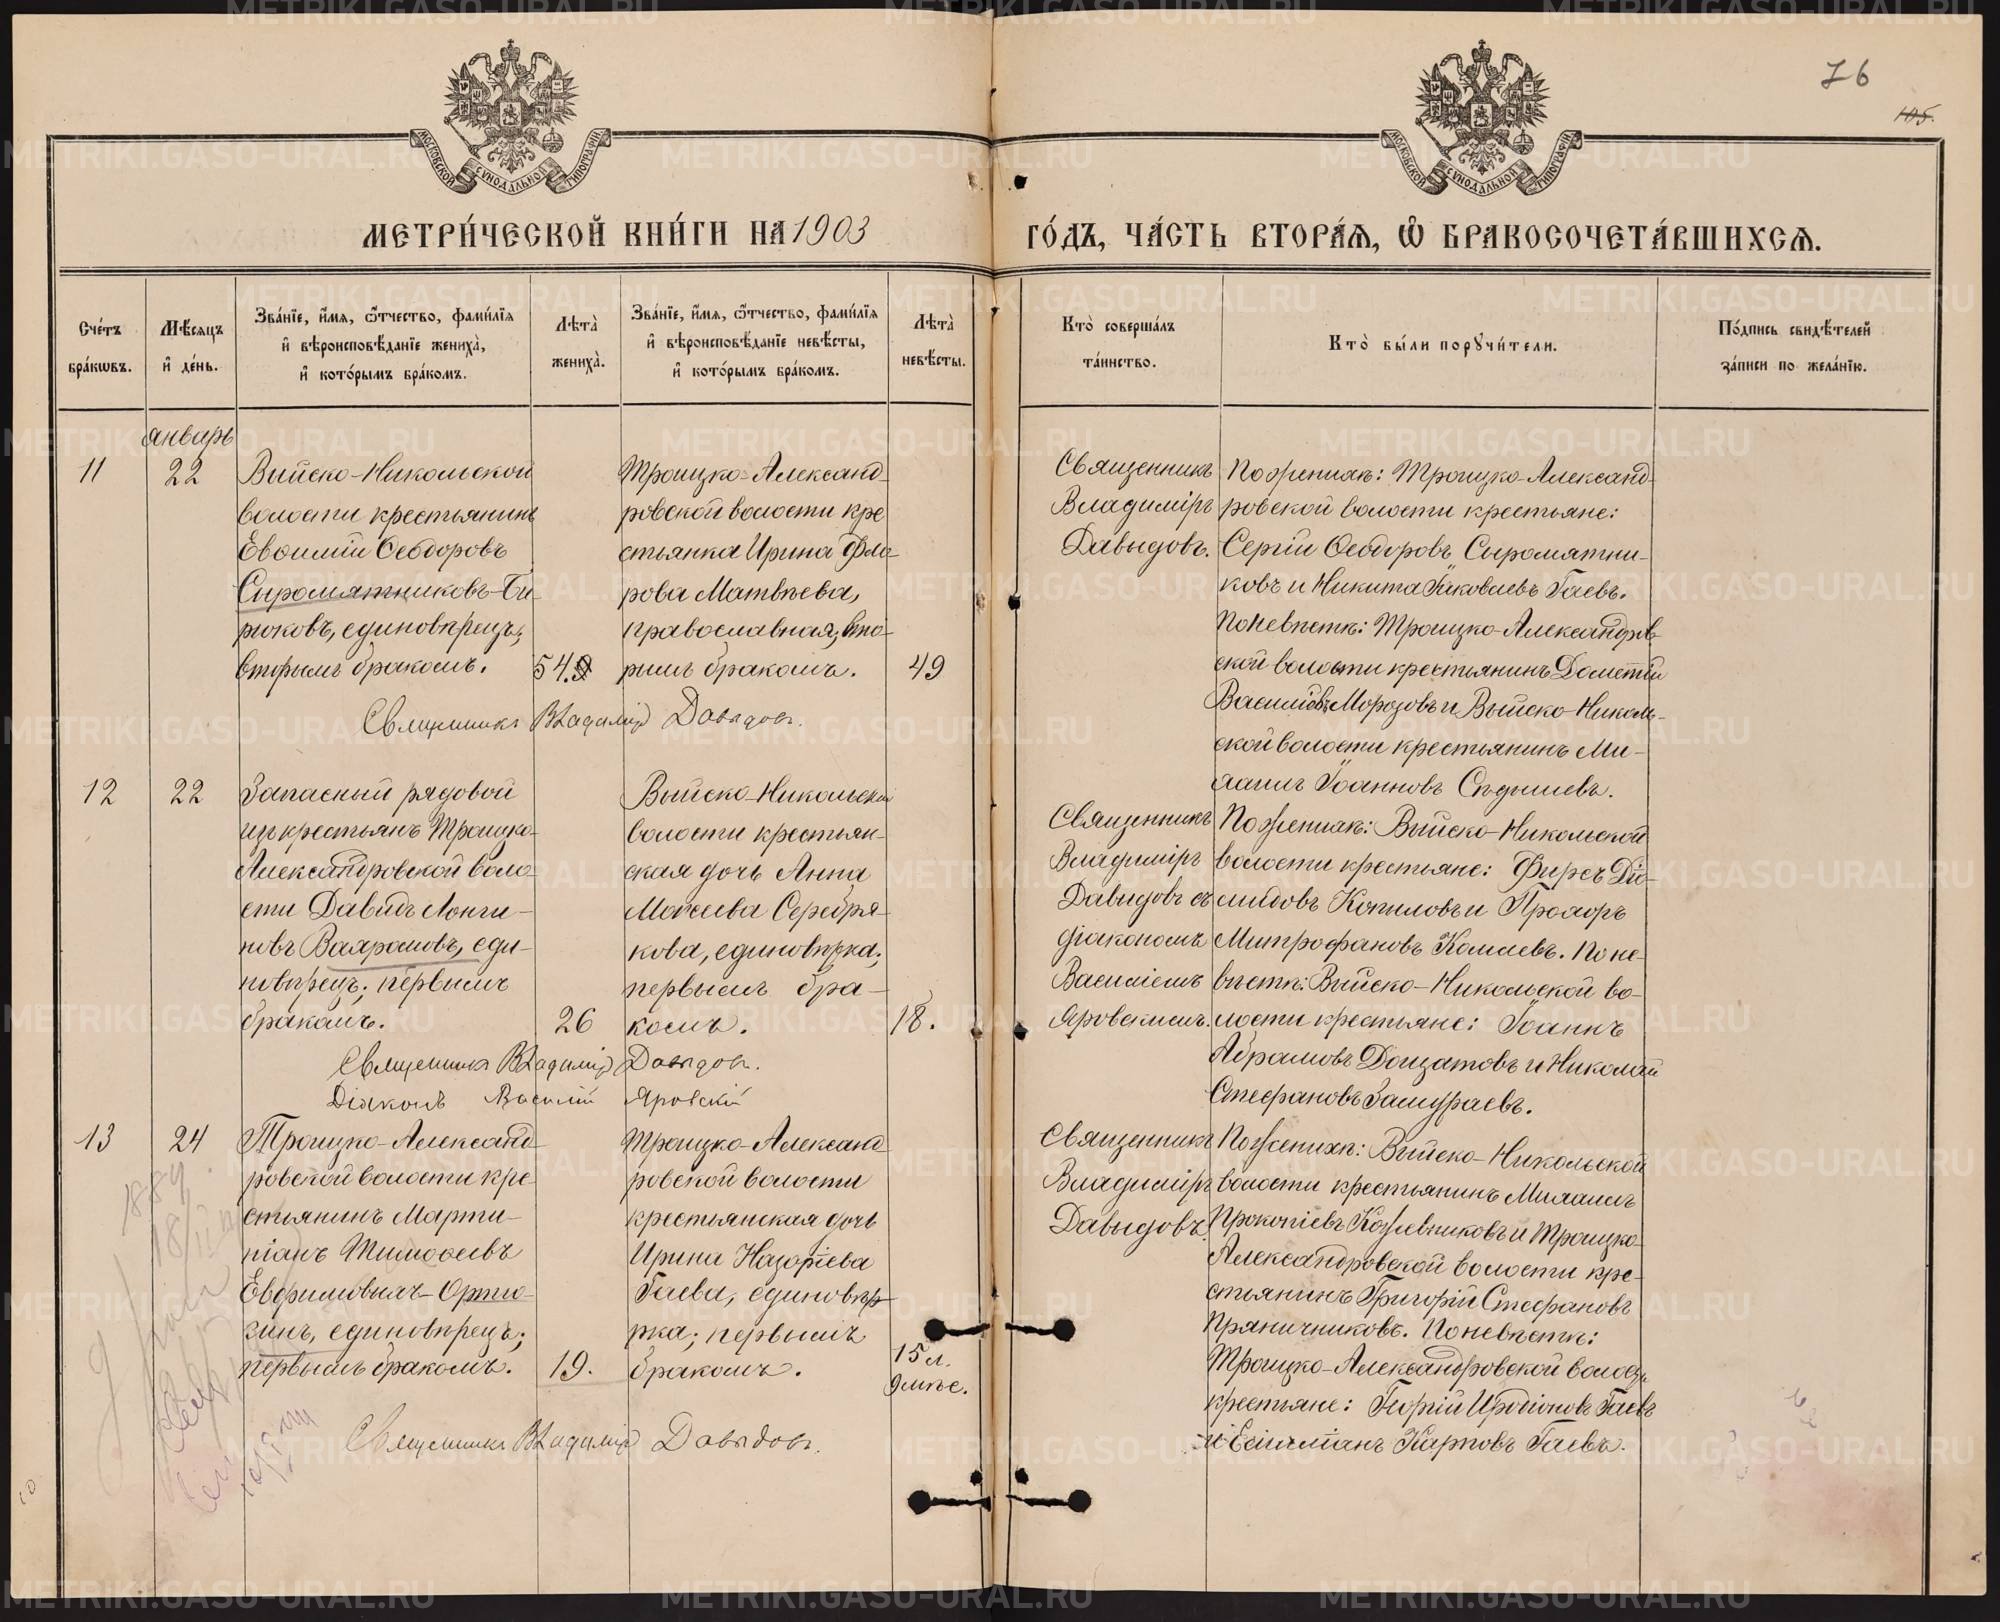 76
105.
МОСКОВСКОЙ СѴНОДАЛЬНОЙ ТИПОГРАФІИ
МОСКОВСКОЙ СѴНОДАЛЬНОЙ ТИПОГРАФІИ
МЕТРИ́ЧЕСКОЙ КНИ́ГИ НА 1903
ГО́ДЪ, ЧА́СТЬ ВТОРА́Ѧ, Ѽ БРАКОСОЧЕТА́ВШИХСѦ.
Сче́тъ
бра́кѡвъ.
Мѣ́сяцъ
и҆ де́нь.
Зва́нїе, и҆́мѧ, ѻ҆́тчество, фами́лїѧ
и҆ вѣроисповѣ́данїе жениха̀,
и҆ кото́рымъ бра́комъ.
Лѣта̀
жениха̀.
Зва́нїе, и҆́мѧ, ѻ҆́тчество, фами́лїѧ
и҆ вѣроисповѣ́данїе невѣ́сты,
и҆ кото́рымъ бра́комъ.
Лѣта̀
невѣ́сты.
Кто̀ соверша́лъ
та́инство.
Кто̀ бы́ли порꙋчи́тели.
По́дпись свидѣ́телей
за́писи по жела́нїю.
январь
11
22
Выйско-Никольской
волости крестьянинъ
Евѳимій Ѳеодоровъ
Сыромятниковъ-Би-
рюковъ, единовѣрецъ;
вторымъ бракомъ.
54.
Троицко-Александ-
ровской волости кре
стьянка Ирина Фло-
рова Матвѣева,
православная; вто-
рымъ бракомъ.
49
Священникъ
Владиміръ
Давыдовъ.
По женихѣ: Троицко-Александ-
ровской волости крестьяне:
Сергій Ѳеодоровъ Сыромятни-
ковъ и Никита Іаковлевъ Гаевъ.
По невѣстѣ: Троицко-Александров-
ской волости крестьянинъ Дометій
Васильевъ Морозовъ и Выйско-Николь-
ской волости крестьянинъ Ми-
хаилъ Іоанновъ Сѣдышевъ.
Священникъ Владиміръ Давыдовъ.
12
22
Запасный рядовой
изъ крестьянъ Троицко-
Александровской воло-
сти Давидъ Лонги-
новъ Вахрамовъ, еди-
новѣрецъ; первымъ
бракомъ.
26
Выйско-Никольской
волости крестьян-
ская дочь Анна
Мокеева Серебря-
кова, единовѣрка;
первымъ бра-
комъ.
18.
Священникъ
Владиміръ
Давыдовъ съ
діакономъ
Василіемъ
Яровскимъ.
По женихѣ: Выйско-Никольской
волости крестьяне: Фирсъ Діо-
мидовъ Копыловъ и Прохоръ
Митрофановъ Комаевъ. По не-
вѣстѣ: Выйско-Никольской во-
лости крестьяне: Іоаннъ
Абрамовъ Дощатовъ и Николай
Стефановъ Замураевъ.
Священникъ Владиміръ Давыдовъ.
Діаконъ Василій Яровскій
13
24
Троицко-Александ-
ровской волости кре-
стьянинъ Марти-
ніанъ Тимоѳеевъ
Евфимовыхъ-Ортю-
гинъ, единовѣрецъ;
первымъ бракомъ.
19.
Троицко-Александ
ровской волости
крестьянская дочь
Ирина Назаріева
Гаева, единовѣр-
рка; первымъ
бракомъ.
15 л.
9 мѣс.
Священникъ
Владиміръ
Давыдовъ.
По женихѣ: Выйско-Никольской
волости крестьянинъ Михаилъ
Прокопіевъ Кожевниковъ и Троицко-
Александровской волости кре-
стьянинъ Григорій Стефановъ
Пряничниковъ. По невѣстѣ:
Троицко-Александровской волости
крестьяне: Георгій Иродіоновъ Гаевъ
и Карповъ Гаевъ.
Священникъ Владиміръ Давыдовъ.
1889
METRIKI.GASO-URAL.RU